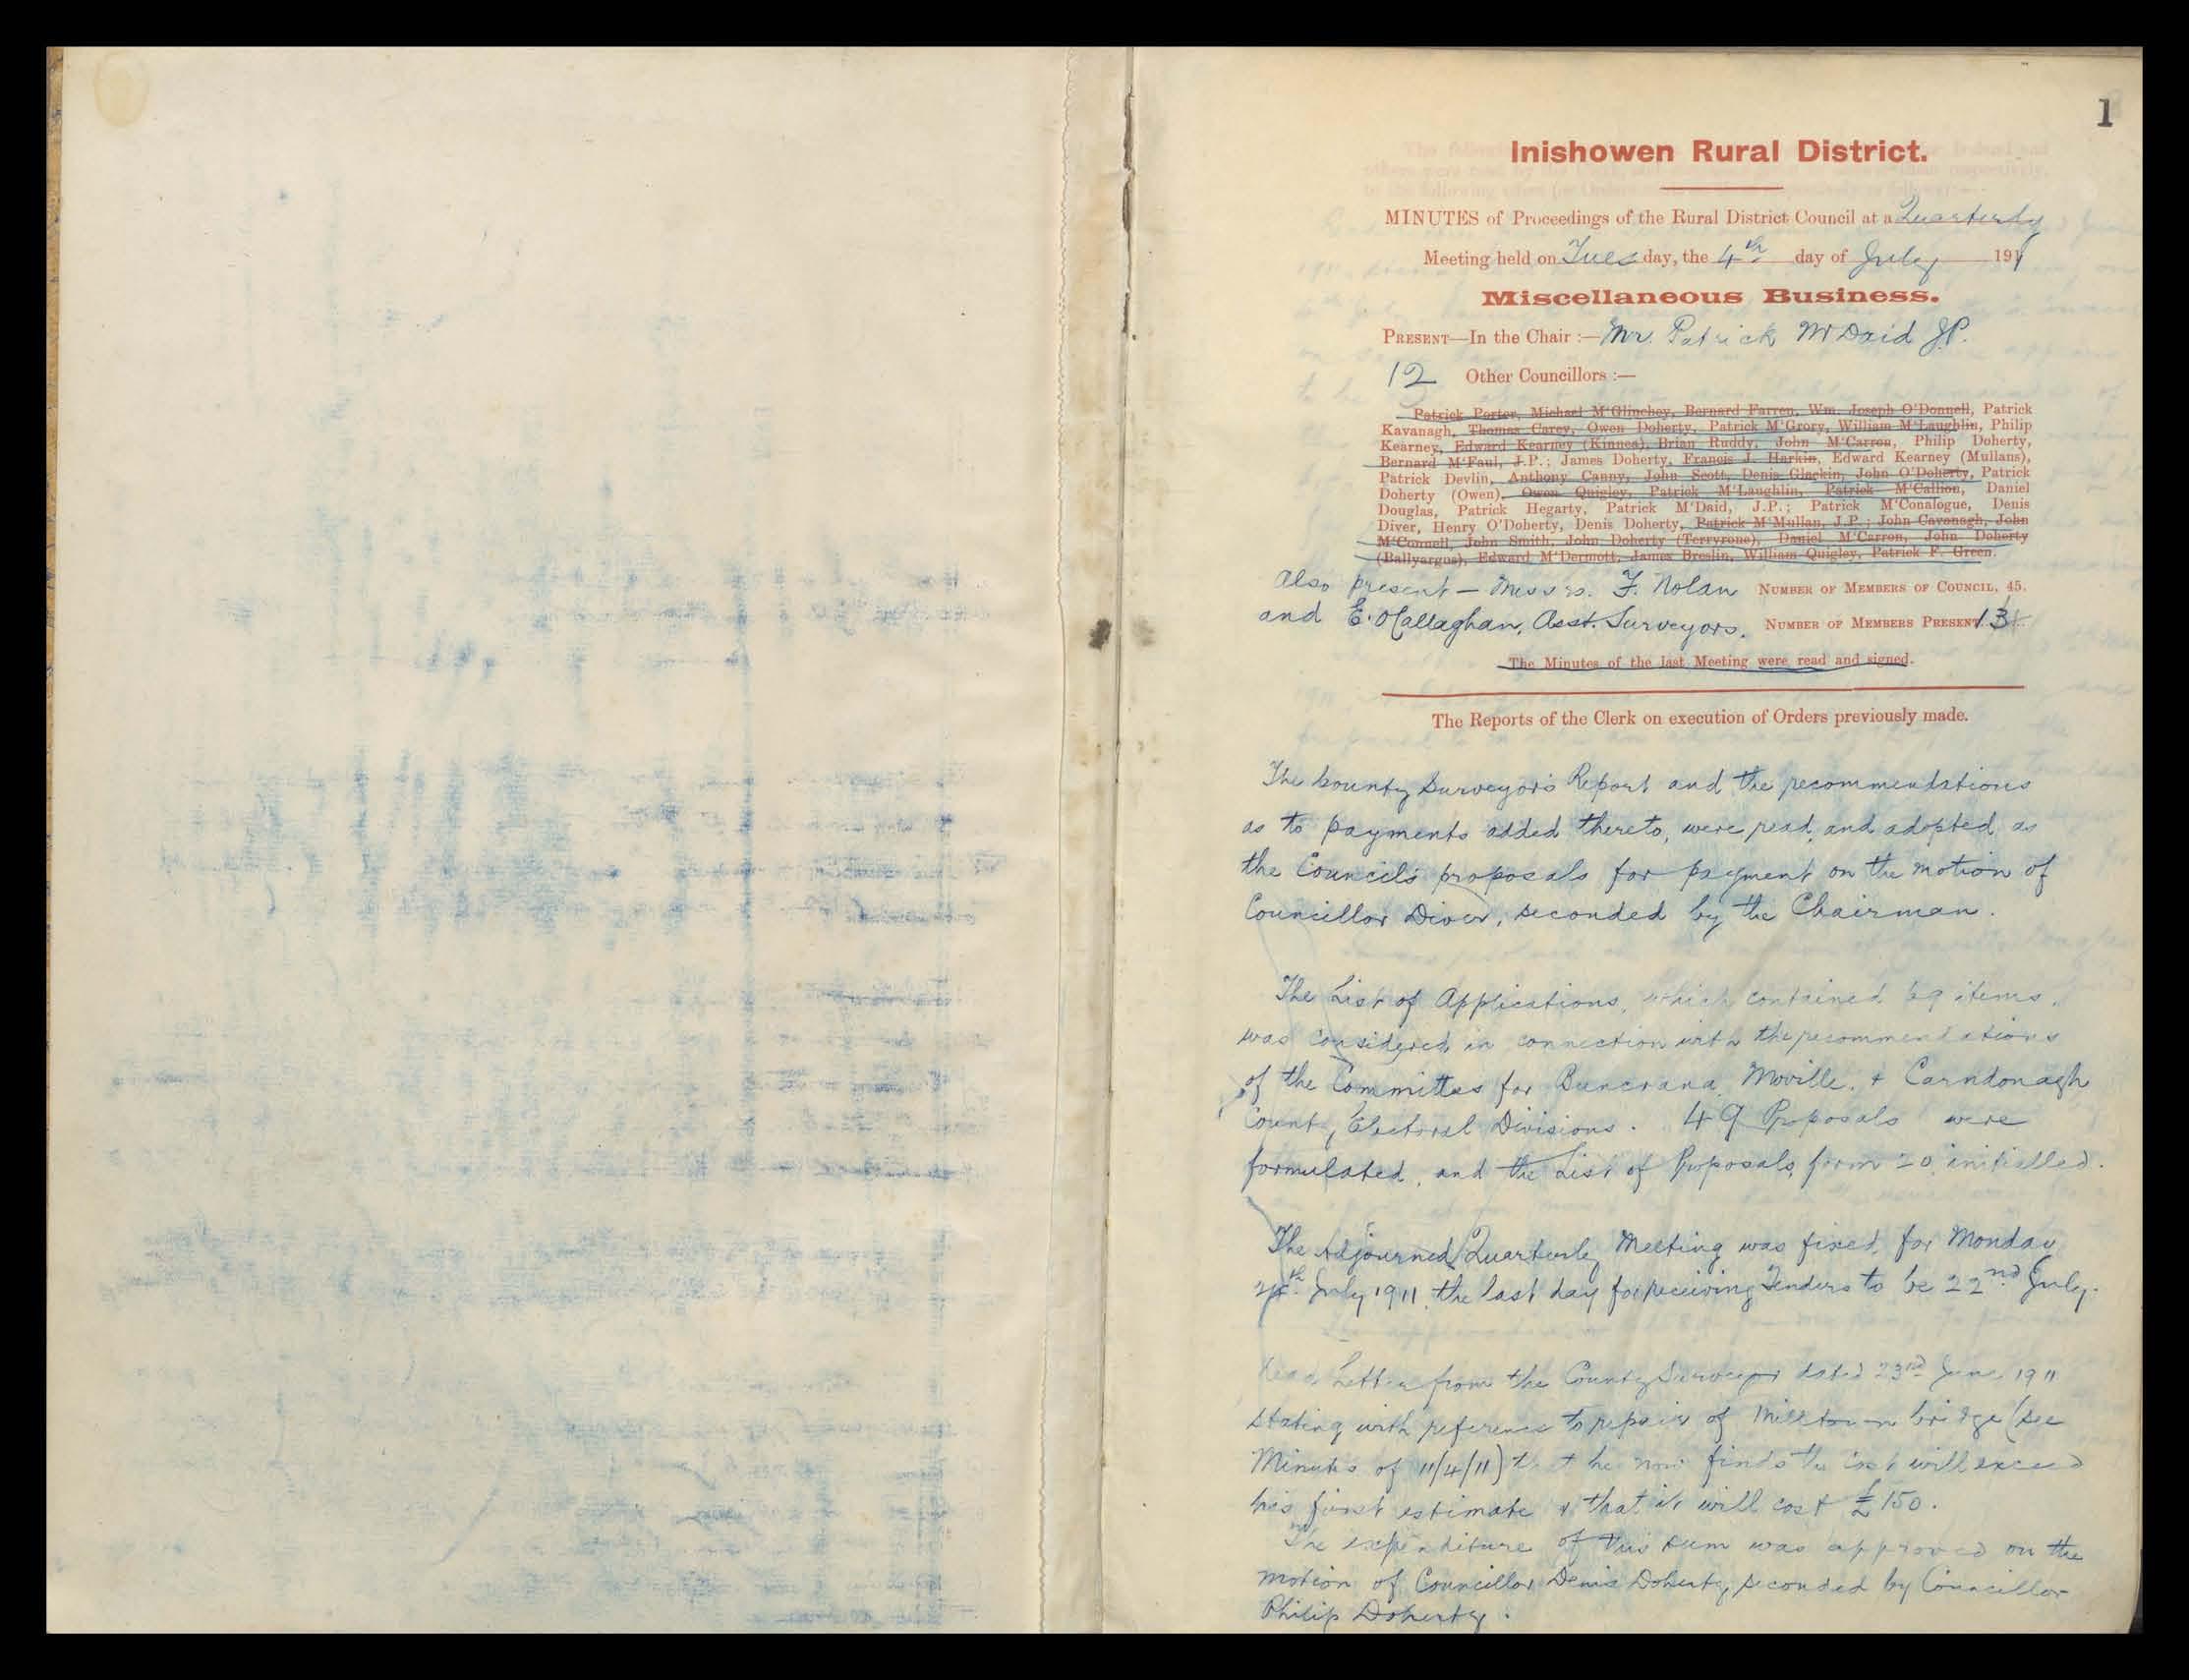 1
Inishowen Rural District.
MINUTES of Proceedings of the Rural District Council at a Quarterly
Meeting held on Tuesday, the 4th day of July 1911
Miscellaneous Business.
PRESENT—In the Chair :— Mr. Patrick McDaid J.P.
12 Other Councillors :—
Patrick Porter, Michael M'Glinchey, Bernard Farren, Wm. Joseph O'Donnell, Patrick
Kavanagh, Thomas Carey, Owen Doherty, Patrick M'Grory, William M'Laughlin, Philip
Kearney, Edward Kearney (Kinnea), Brian Ruddy, John M'Carron, Philip Doherty,
Bernard M'Faul, J.P.; James Doherty, Francis J. Harkin, Edward Kearney (Mullans),
Patrick Devlin, Anthony Canny, John Scott, Denis Glackin, John O'Doherty, Patrick
Doherty (Owen), Owen Quigley, Patrick M'Laughlin, Patrick M'Callion, Daniel
Douglas, Patrick Hegarty, Patrick M'Daid, J.P.; Patrick M'Conalogue, Denis
Diver, Henry O'Doherty, Denis Doherty, Patrick M'Mullan, J.P.; John Cavonagh, John
M'Connell, John Smith, John Doherty (Terryrone), Daniel M'Carron, John Doherty
(Ballyargus), Edward M'Dermott, James Breslin, William Quigley, Patrick F. Green.
Also present — Messrs. F. Nolan NUMBER OF MEMBERS OF COUNCIL, 45.
and E. O'Callaghan, Asst. Surveyors. NUMBER OF MEMBERS PRESENT 13
The Minutes of the last Meeting were read and signed.
The Reports of the Clerk on execution of Orders previously made.
The County Surveyor's Report and the recommendations
as to payments added thereto, were read, and adopted as
the Council's proposals for payment on the motion of
Councillor Diver, seconded by the Chairman.
The List of Applications, which contained 69 items,
was considered in connection with the recommendations
of the Committees for Buncrana, Moville, & Carndonagh
County Electoral Divisions. 49 Proposals were
formulated, and the List of Proposals, form 20, initialled.
The Adjourned Quarterly Meeting was fixed for Monday
24th July 1911, the last day for receiving Tenders to be 22nd July.
Read Letter from the County Surveyor dated 23rd June 1911
stating with reference to repair of Milltown bridge (see
Minutes of 11/4/11) that he now finds the cost will exceed
his first estimate & that it will cost £150.
The expenditure of this sum was approved on the
motion of Councillor Denis Doherty, seconded by Councillor
Philip Doherty.